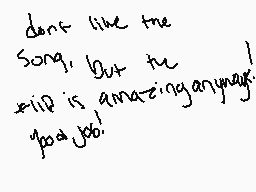 dont like the
song, but the
is amazing anyways!
good job!